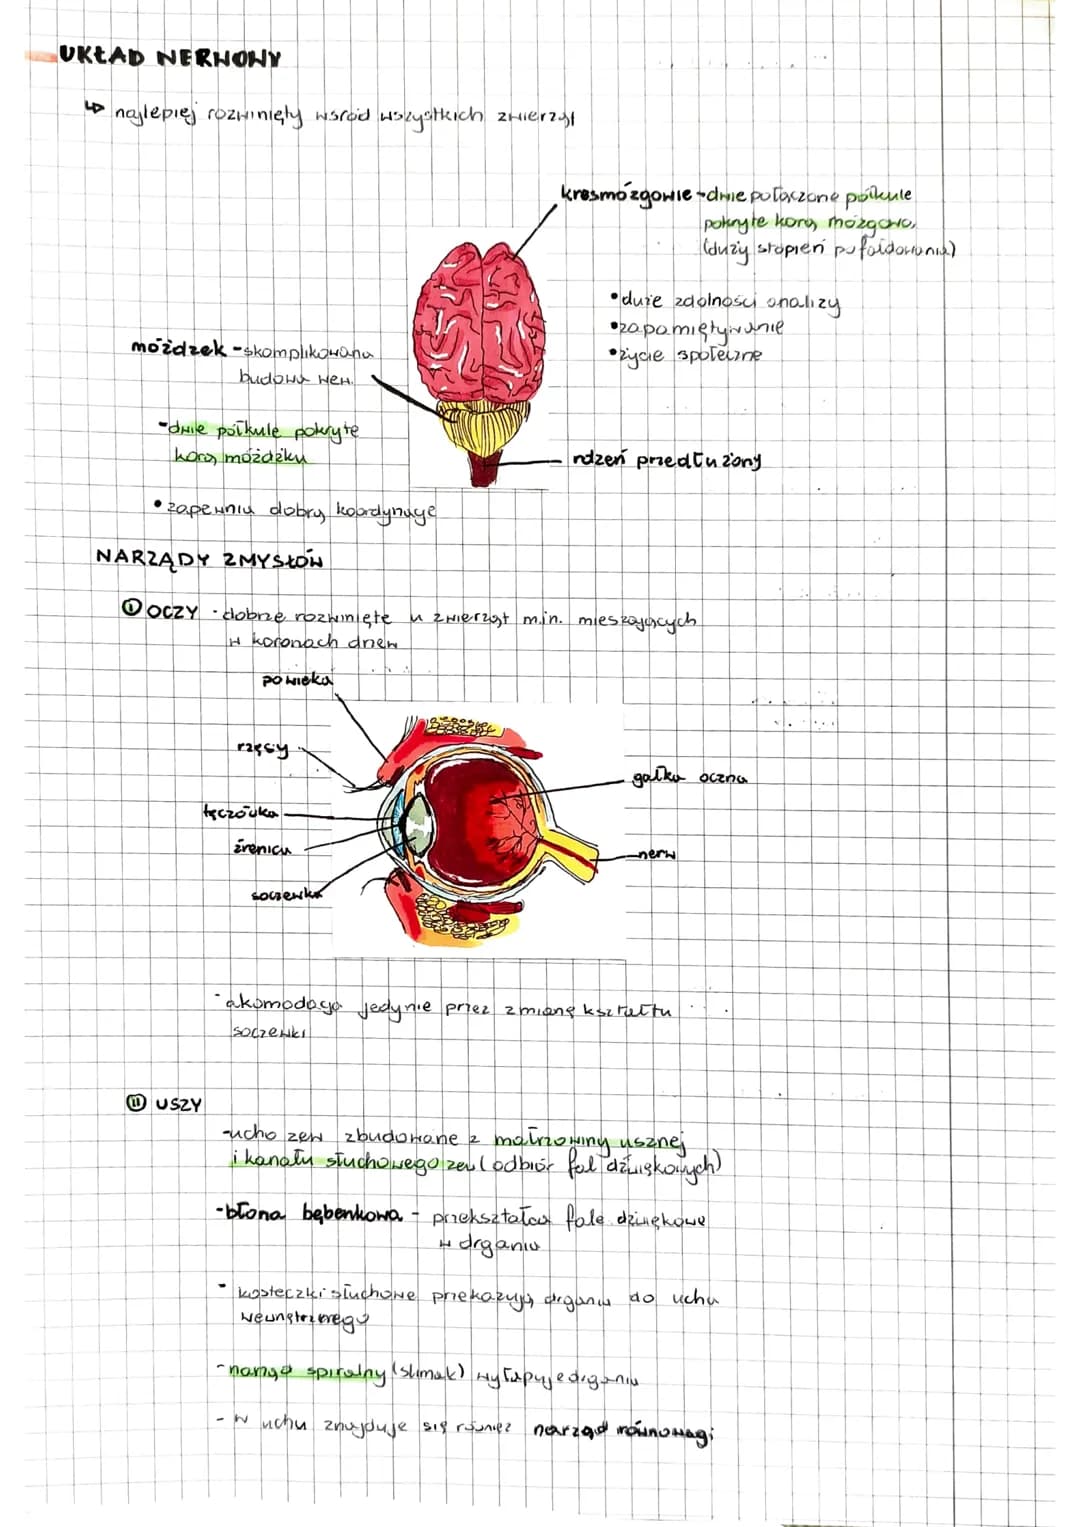 UKŁAD NERWOWY
↳ najlepiej rozwinięty wśród wszystkich zwierząt
kresmózgowie - dwie połączone półkule
pokryte korą mózgową
(duży stopień pofałdowania)
• duże zdolności analizy
• zapamiętywanie
• życie społeczne
móżdżek - skomplikowana
budowa wew.
- dwie półkule pokryte
korą móżdżku
• zapewnia dobrą koordynację
rdzeń przedłużony
NARZĄDY ZMYSŁÓW
I OCZY · dobrze rozwinięte u zwierząt m.in. mieszkających
w koronach drzew
powieka
rzęsy
tęczówka
źrenica
soczewka
gałka oczna
nerw
· akomodacja jedynie przez zmianę kształtu
soczewki
II USZY
- ucho zew zbudowane z małżowiny usznej
i kanału słuchowego zew (odbiór fal dźwiękowych)
- błona bębenkowa - przekształca fale dźwiękowe
w drgania
· kosteczki słuchowe przekazują drgania do ucha
wewnętrznego
- narząd spiralny (ślimak) wyłapuje drgania
- w uchu znajduje się również narząd równowagi